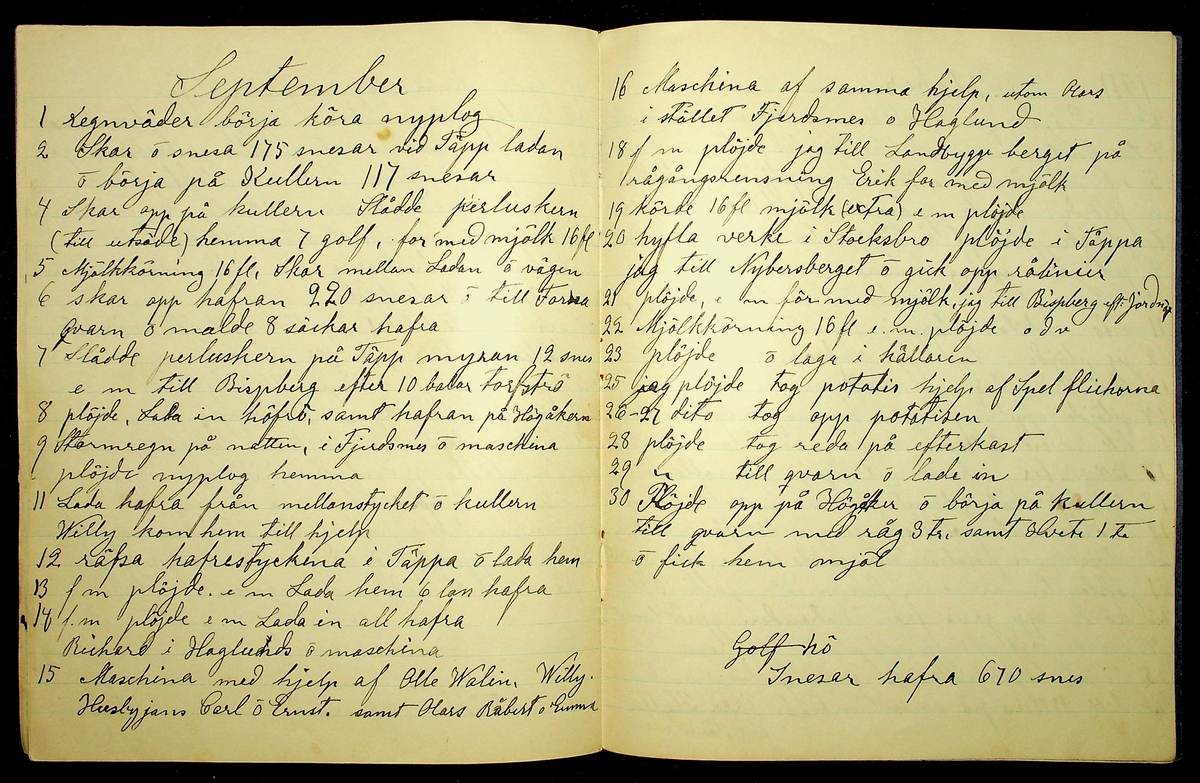 September
1 Regnväder börja köra nyplog
2 Skar ō snesa 175 snesar vid Täpp ladan
ō börja på Kullern 117 snesar
4 Skar opp på kullern Slådde perluskern
(till utsäde) hemma 7 golf, for med mjölk 16 fl
5 Mjölkkörning 16 fl, Skar mellan Ladan ō vägen
6 skar opp hafran 220 snesar ō till Forsa
qvarn ō malde 8 säckar hafra
7 Slådde perluskern på Täpp myran 12 snes
e m till Bispberg efter 10 balar torfströ
8 plöjde, Lada in höfrö, samt hafran på Högåkern
9 Stormregn på natten, i Fjerdsmes ō maschina
plöjde nyplog hemma
11 Lada hafra från mellanstycket ō kullern
Willy kom hem till hjelp
12 räfsa hafrestyckena i Täppa ō lada hem
13 f m plöjde. e m Lada hem 6 lan hafra
14 f.m plöjde e m Lada in all hafra
Richard i Haglunds ō maschina
15 Maschina med hjelp af Olle Walin, Willy.
Husbyjans Carl ō Ernst. samt Olars Råbert o Emma
16 Maschina af samma hjelp, utom Olars
i stället Fjerdsmes o Haglund
18 f m plöjde jag till Landbyggeberget på
rågångsrensning Erik for med mjölk
19 körde 16 fl mjölk (extra) e m plöjde
20 hyfla verke i Stocksbro plöjde i Täppa
jag till Nybersberget ō gick opp rålinier
21 plöjde, e m för med mjölk, jag till Bispberg eft: Jordning
22 Mjölkkörning 16 fl e. m. plöjde o d v
23 plöjde ō laga i källaren
25 jag plöjde tog potatis hjelp af Spel flickorna
26-27 dito tog opp potatisen
28 plöjde tog reda på efterkast
29 " till qvarn ō lade in
30 Plöjde opp på Högåker ō börja på kullern
till qvarn med råg 3 tr. samt Hvete 1 ta
ō fick hem mjöl
Golf hö
Snesar hafra 670 snes